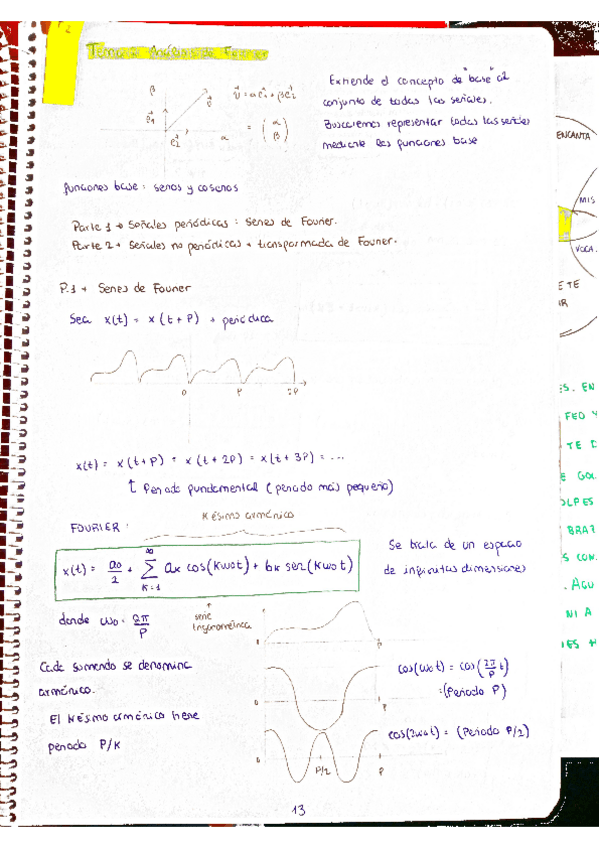 T2
Tema 2: Análisis de Fourier
β
v = αe1 + βe2
e1
v
= (α
β)
e2
α
Extiende el concepto de "base" al
conjunto de todas las señales.
Buscaremos representar todas las señales
mediante las funciones base
funciones base: senos y cosenos
Parte 1 → Señales periódicas: Series de Fourier.
Parte 2 → Señales no periódicas → transformada de Fourier.
P.1 → Series de Fourier
Sea x(t) = x(t+P) → periódica
0 P 2P
x(t) = x(t+P) = x(t+2P) = x(t+3P) = ...
Periodo fundamental (periodo más pequeño)
Késimo armónico
FOURIER:
x(t) = a0/2 + ∞ Σ K=1 aK cos(Kω0t) + bK sen(Kω0t)
Se trata de un espacio
de infinitas dimensiones
donde ω0 = 2π/P
serie
trigonométrica
P
Cada sumando se denomina
armónico.
El Késimo armónico tiene
periodo P/K
cos(ω0t) = cos(2π/P t)
=(Periodo P)
0 P
cos(2ω0t) = (Periodo P/2)
0 P/2 P
13
ENCANTA
MIS
VOCA
E TE
IR
ES. EN
FEO Y
TE D
E GOL
OLPES
BRAZ
S CON.
. AGU
NI A
IES H